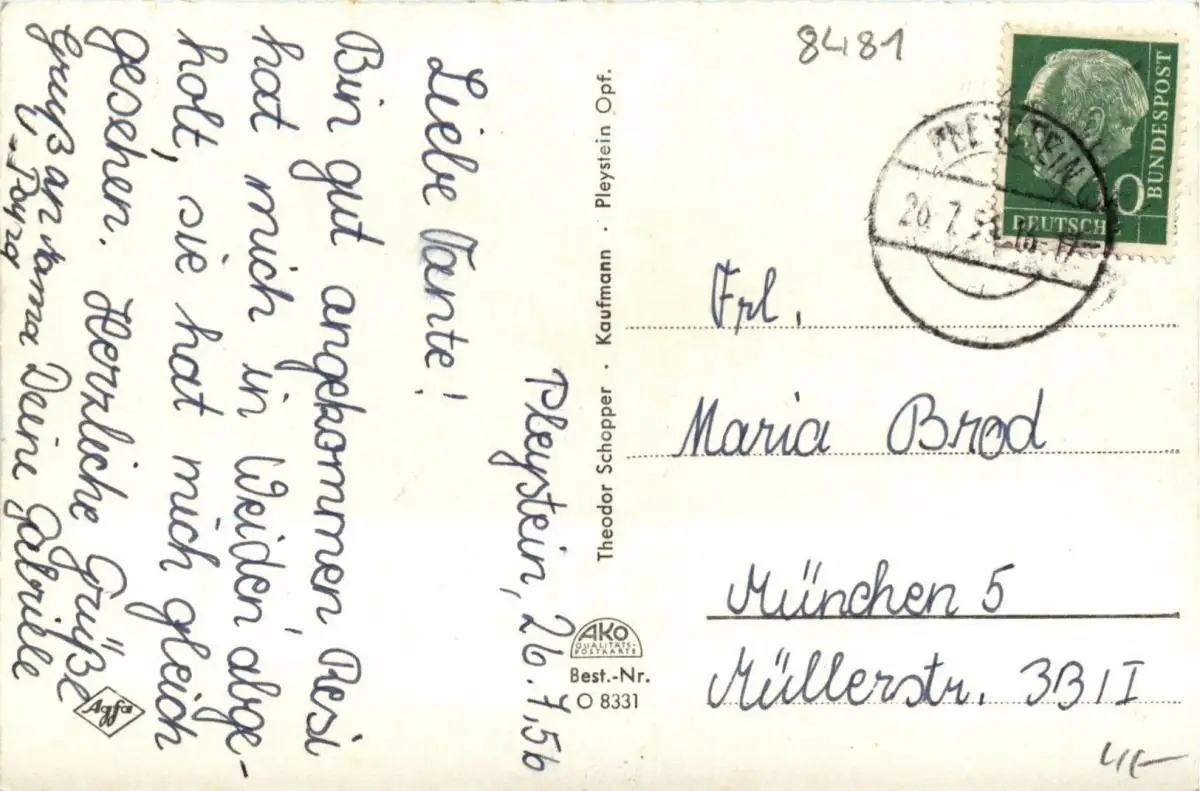 Pleystein, 26.7.56
Liebe Tante!
Bin gut angekommen, Resi
hat mich in Weiden abge-
holt, sie hat mich gleich
gesehen. Herzliche Grüße
Deine Gabriele
Gruß an Mama
Theodor Schopper · Kaufmann · Pleystein Opf.
AKO
QUALITÄTS-
POSTKARTE
Best.-Nr.
O 8331
Agfa
8481
DEUTSCHE
BUNDESPOST
PLEYSTEIN
26.7.5
Frl.
Maria Brod
München 5
Müllerstr. 33/I